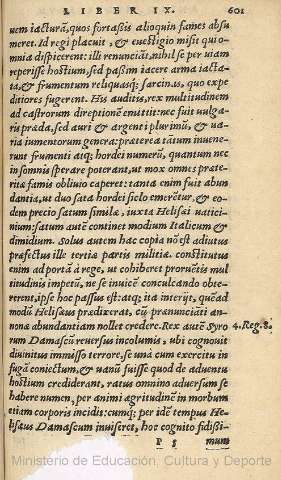 LIBER IX. 601
uem iacturā, quos fortaßis alioquin fames absu
meret. Id regi placuit, & euestigio misit qui o-
mnia dispicerent: illi renunciāt, nihil se per uiam
reperisse hostium, sed paßim iacere arma iacta-
ta, & frumentum reliquasq; sarcinas, quo expe
ditiores fugerent. His auditis, rex multitudinem
ad castrorum direptionē emittit: nec fuit uulga-
ris præda, sed auri & argenti plurimū, & ua-
ria iumentorum genera: præterea tātum inuene-
runt frumenti atq; hordei numerū, quantum nec
in somnis sperare poterant, ut mox omnes præte-
ritæ famis obliuio caperet: tanta enim fuit abun
dantia, ut duo sata hordei siclo emerētur, & eo-
dem precio satum similæ, iuxta Helisæi uatici-
nium: satum autē continet modium Italicum &
dimidium. solus autem hac copia nō est adiutus
præfectus ille tertiæ partis militiæ. constitutus
enim ad portā à rege, ut cohiberet proruētis mul
titudinis impetū, ne se inuicē conculcando obte-
rerent, ipse hoc passus est: atq; ita interijt, quēad
modū Helisæus prædixerat, cū prænunciāti an-
nonæ abundantiam nollet credere. Rex autē Syro 4. Reg. 8.
rum Damascū reuersus incolumis, ubi cognouit
diuinitus immisso terrore, se unà cum exercitu in
fugā coniectum, & uanū fuisse quod de aduentu
hostium crediderant, ratus omnino aduersum se
habere numen, per animi ægritudinē in morbum
etiam corporis incidit: cumq; per idē tempus He-
lisæus Damascum inuiseret, hoc cognito fidißi-
P 5 mum
Ministerio de Educación, Cultura y Deporte